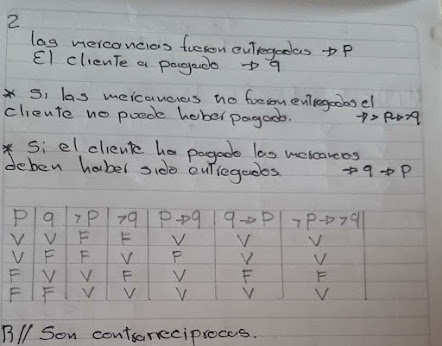 2
las mercancias fueron entregadas → P
El cliente a pagado → q
* Si las mercancias no fueron entregadas el
cliente no puede haber pagado. → ¬P→¬q
* Si el cliente ha pagado las mercancias
deben haber sido entregadas → q → P
P | q | ¬P | ¬q | P→q | q→P | ¬P→¬q
V V F F V V V
V F F V F V V
F V V F V F F
F F V V V V V
R// Son contrarreciprocas.